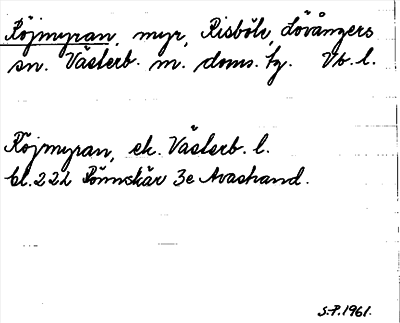 Röjmyran, myr, Risböle, Lövångers
sn. Västerb. m. doms. tg. Vb. l.
Röjmyran, ek. Västerb. l.
bl. 222 Rönnskär 3e Avastrand.
S.-P. 1961.